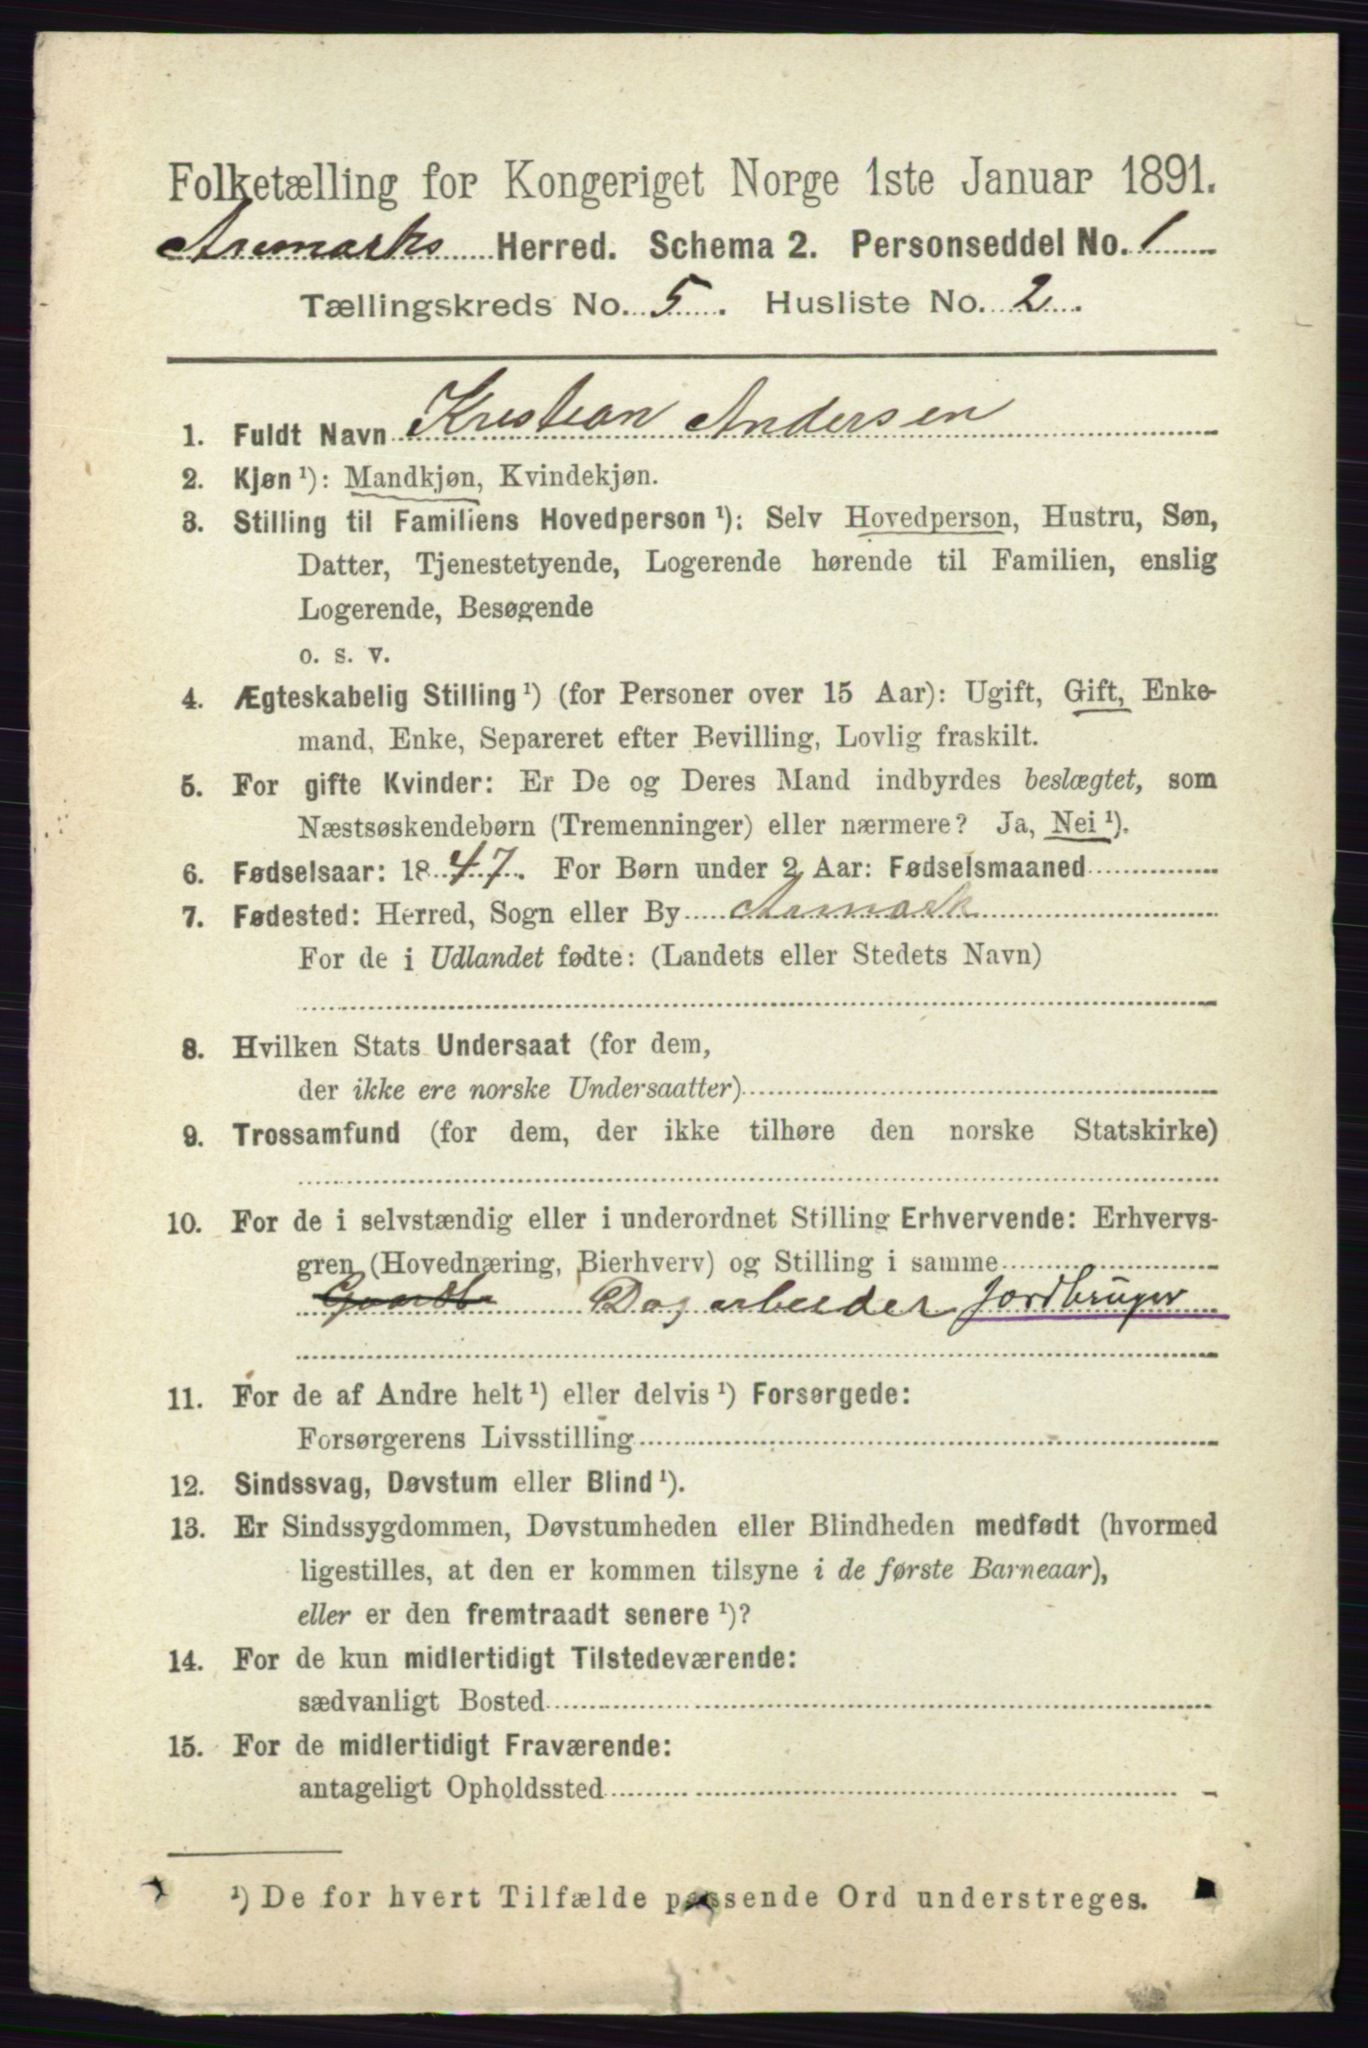 Folketælling for Kongeriget Norge 1ste Januar 1891.
Aremarks Herred. Schema 2. Personseddel No. 1
Tællingskreds No. 5. Husliste No. 2.
1. Fuldt Navn Kristian Andersen
2. Kjøn ¹): Mandkjøn, Kvindekjøn.
3. Stilling til Familiens Hovedperson ¹): Selv Hovedperson, Hustru, Søn,
Datter, Tjenestetyende, Logerende hørende til Familien, enslig
Logerende, Besøgende
o. s. v.
4. Ægteskabelig Stilling ¹) (for Personer over 15 Aar): Ugift, Gift, Enke-
mand, Enke, Separeret efter Bevilling, Lovlig fraskilt.
5. For gifte Kvinder: Er De og Deres Mand indbyrdes beslægtet, som
Næstsøskendebørn (Tremenninger) eller nærmere? Ja, Nei ¹).
6. Fødselsaar: 1847. For Børn under 2 Aar: Fødselsmaaned
7. Fødested: Herred, Sogn eller By Aremark
For de i Udlandet fødte: (Landets eller Stedets Navn)
8. Hvilken Stats Undersaat (for dem,
der ikke ere norske Undersaatter)
9. Trossamfund (for dem, der ikke tilhøre den norske Statskirke)
10. For de i selvstændig eller i underordnet Stilling Erhvervende: Erhvervs-
gren (Hovednæring, Bierhverv) og Stilling i samme
Dagarbeider Jordbruger
11. For de af Andre helt ¹) eller delvis ¹) Forsørgede:
Forsørgerens Livsstilling
12. Sindssvag, Døvstum eller Blind ¹).
13. Er Sindssygdommen, Døvstumheden eller Blindheden medfødt (hvormed
ligestilles, at den er kommen tilsyne i de første Barneaar),
eller er den fremtraadt senere ¹)?
14. For de kun midlertidigt Tilstedeværende:
sædvanligt Bosted
15. For de midlertidigt Fraværende:
antageligt Opholdssted
¹) De for hvert Tilfælde passende Ord understreges.